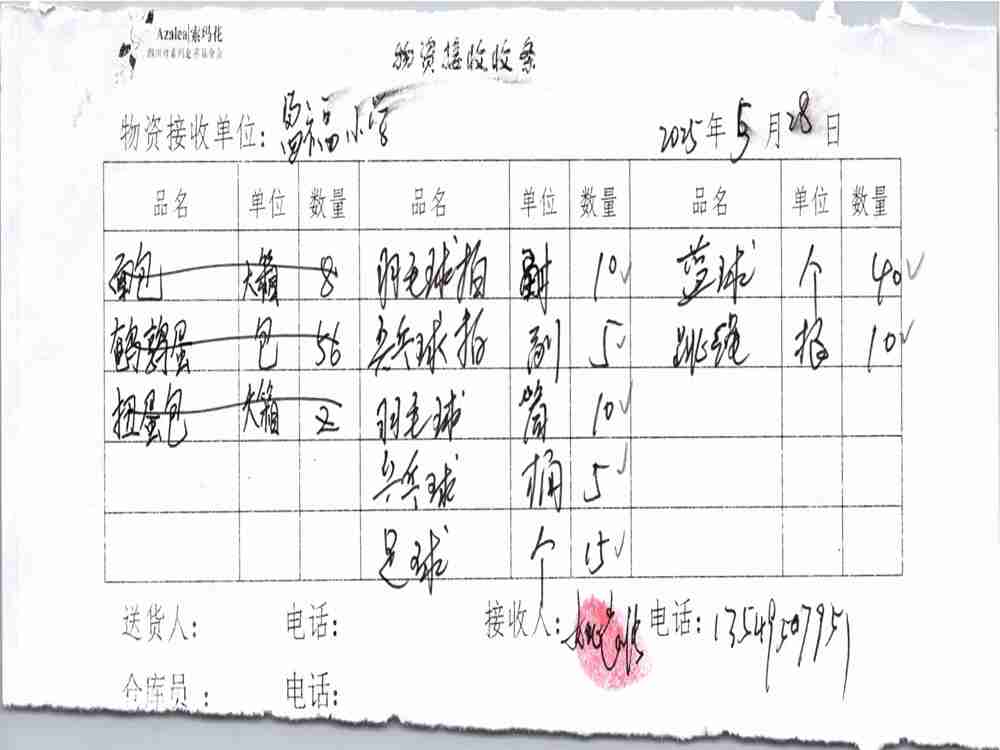 Azalea|索玛花
物资接收收条
物资接收单位: 富福小学 2025年5月28日
品名 单位 数量 品名 单位 数量 品名 单位 数量
面包 大箱 8 羽毛球拍 10✓ 蓝球 个 40✓
鹌鹑蛋 包 56 乒乓球拍 副 5✓ 跳绳 根 10✓
扭蛋包 大箱 2 羽毛球 筒 10✓
乒乓球 桶 5✓
足球 个 15✓
送货人: 电话: 接收人: 电话: 13549507951
仓库员: 电话: